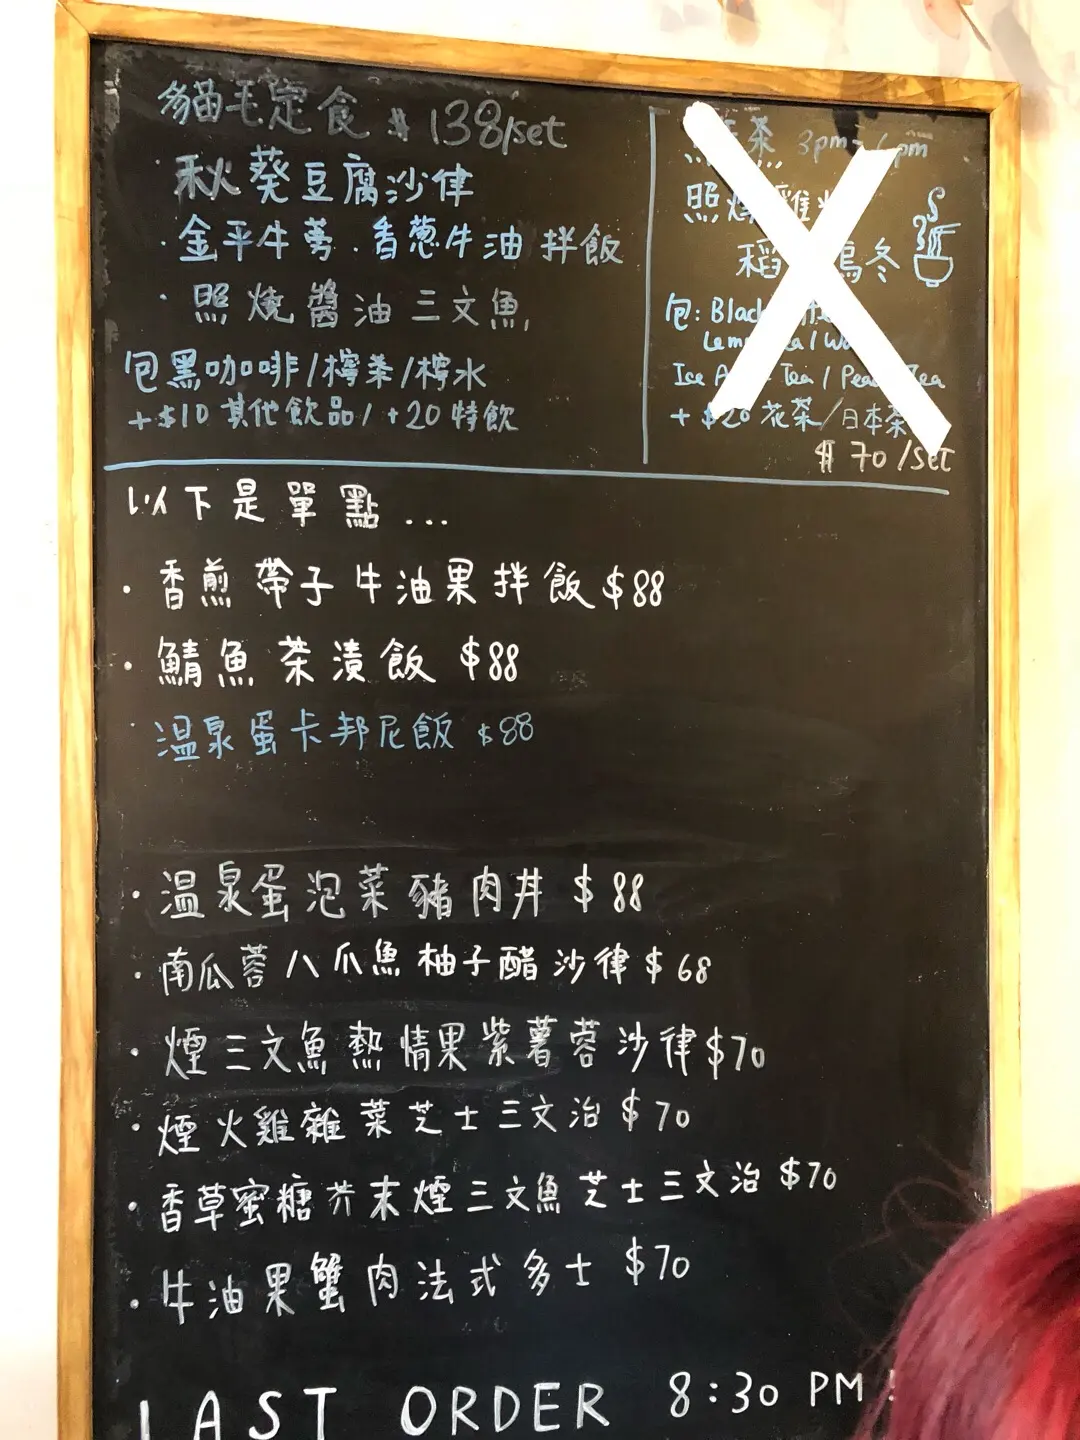 貓毛定食 $138/set
秋葵豆腐沙律
·金平牛蒡.香蔥牛油拌飯
·照燒醬油三文魚
包黑咖啡/檸茶/檸水
+$10其他飲品/+20特飲
茶 3pm- pm
照燒雞
稻 烏冬
包: Black
Ice Tea / Tea
+ $20 花茶/日本茶
$70/set
以下是單點...
·香煎帶子牛油果拌飯 $88
·鯖魚茶漬飯 $88
·溫泉蛋卡邦尼飯 $88
·溫泉蛋泡菜豬肉丼 $88
·南瓜蓉八爪魚柚子醋沙律 $68
·煙三文魚熱情果紫薯蓉沙律 $70
·煙火雞雜菜芝士三文治 $70
·香草蜜糖芥末煙三文魚芝士三文治 $70
·牛油果蟹肉法式多士 $70
LAST ORDER 8:30 PM !